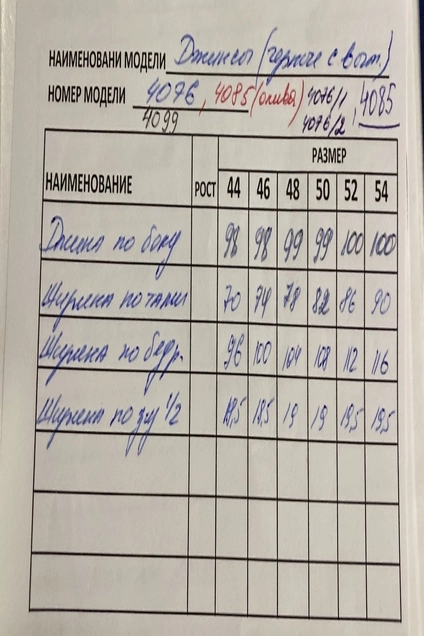 НАИМЕНОВАНИ МОДЕЛИ Джинсы (черные с выт.)
НОМЕР МОДЕЛИ 4076, 4085 (олива) 4076/1, 4085
4099 4076/2
РАЗМЕР
НАИМЕНОВАНИЕ РОСТ 44 46 48 50 52 54
Длина по боку 98 98 99 99 100 100
Ширина по талии 70 74 78 82 86 90
Ширина по бедр. 96 100 104 108 112 116
Ширина по зу 1/2 18,5 18,5 19 19 19,5 19,5